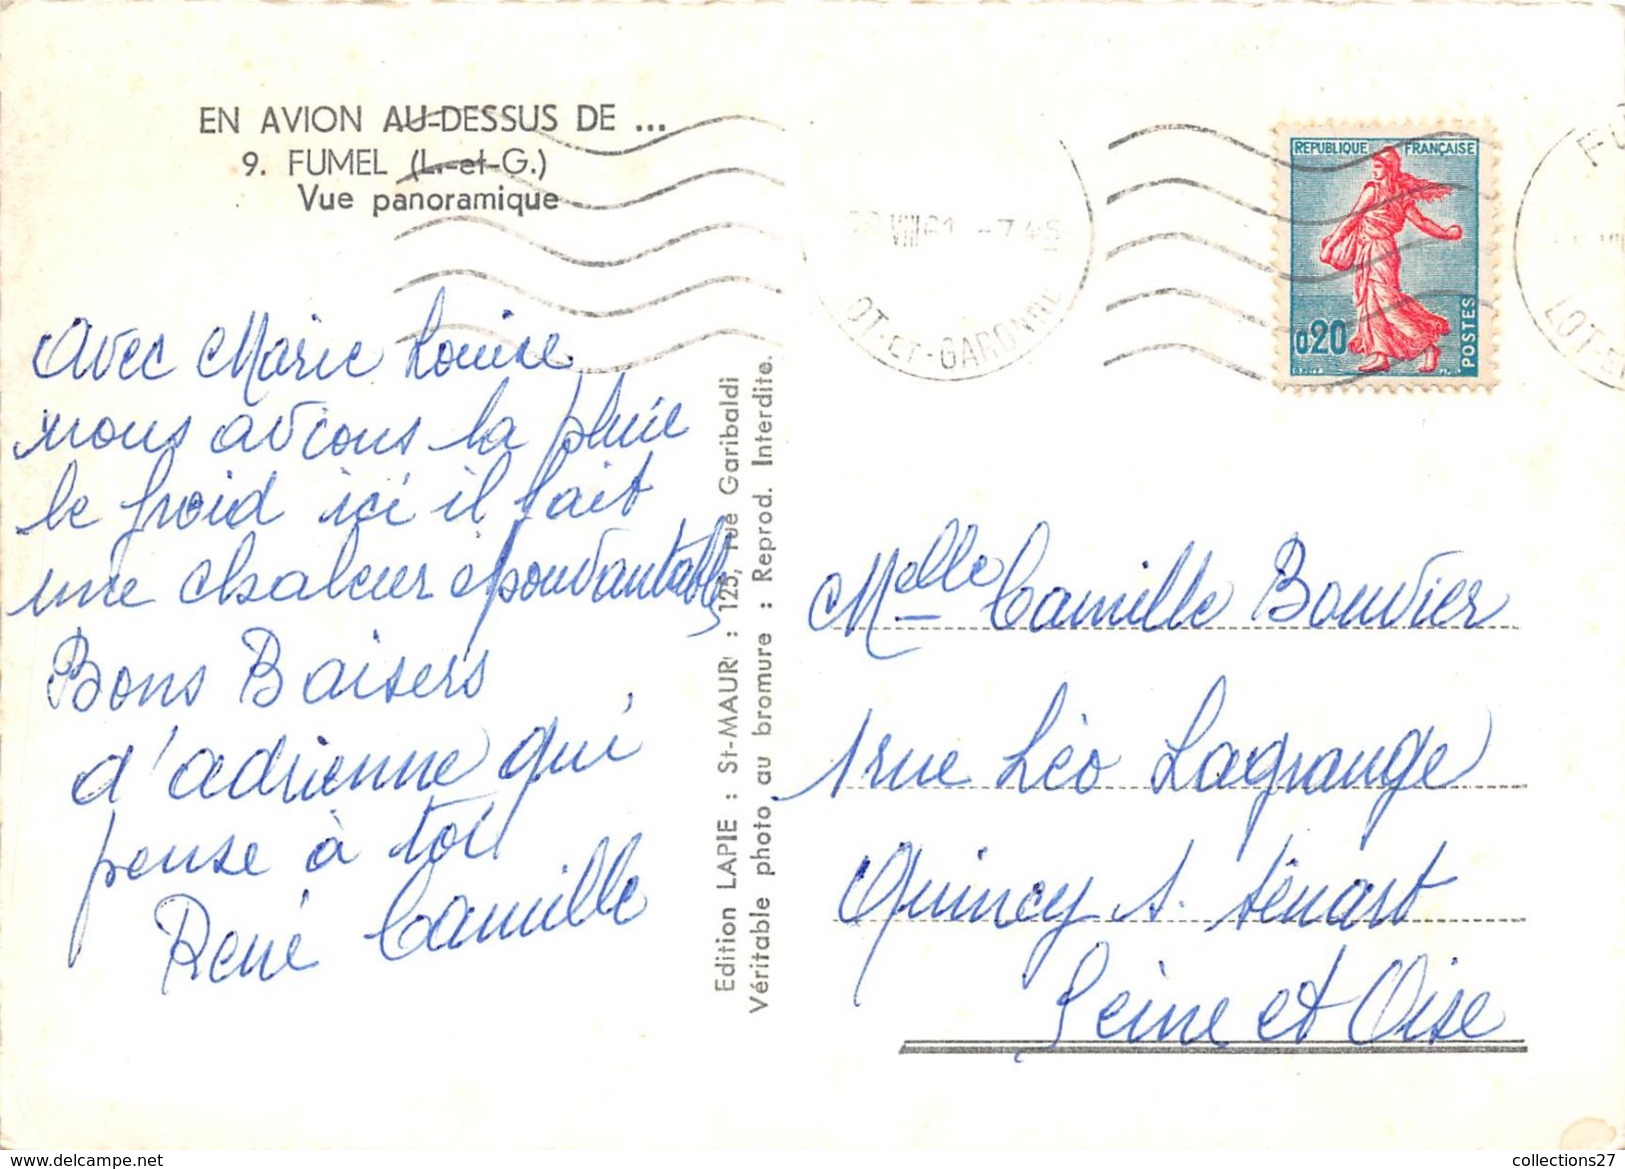 EN AVION AU-DESSUS DE ...
9. FUMEL (L.-et-G.)
Vue panoramique
VIII 61 -7 45
OT-ET-GARONNE
REPUBLIQUE FRANÇAISE
0,20
POSTES
FU
LOT-E
Avec Marie Louise
nous avions la pluie
le froid ici il fait
une chaleur épouvantable
Bons Baisers
d'adrienne qui
pense à toi
René Camille
Edition LAPIE : St-MAUR : 125, rue Garibaldi
Véritable photo au bromure : Reprod. Interdite.
Melle Camille Bouvier
1 rue Léo Lagrange
Quincy s. Sénart
Seine et Oise
collections27